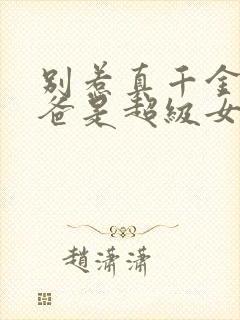 别惹真千金
爸是超级女
趙潇潇